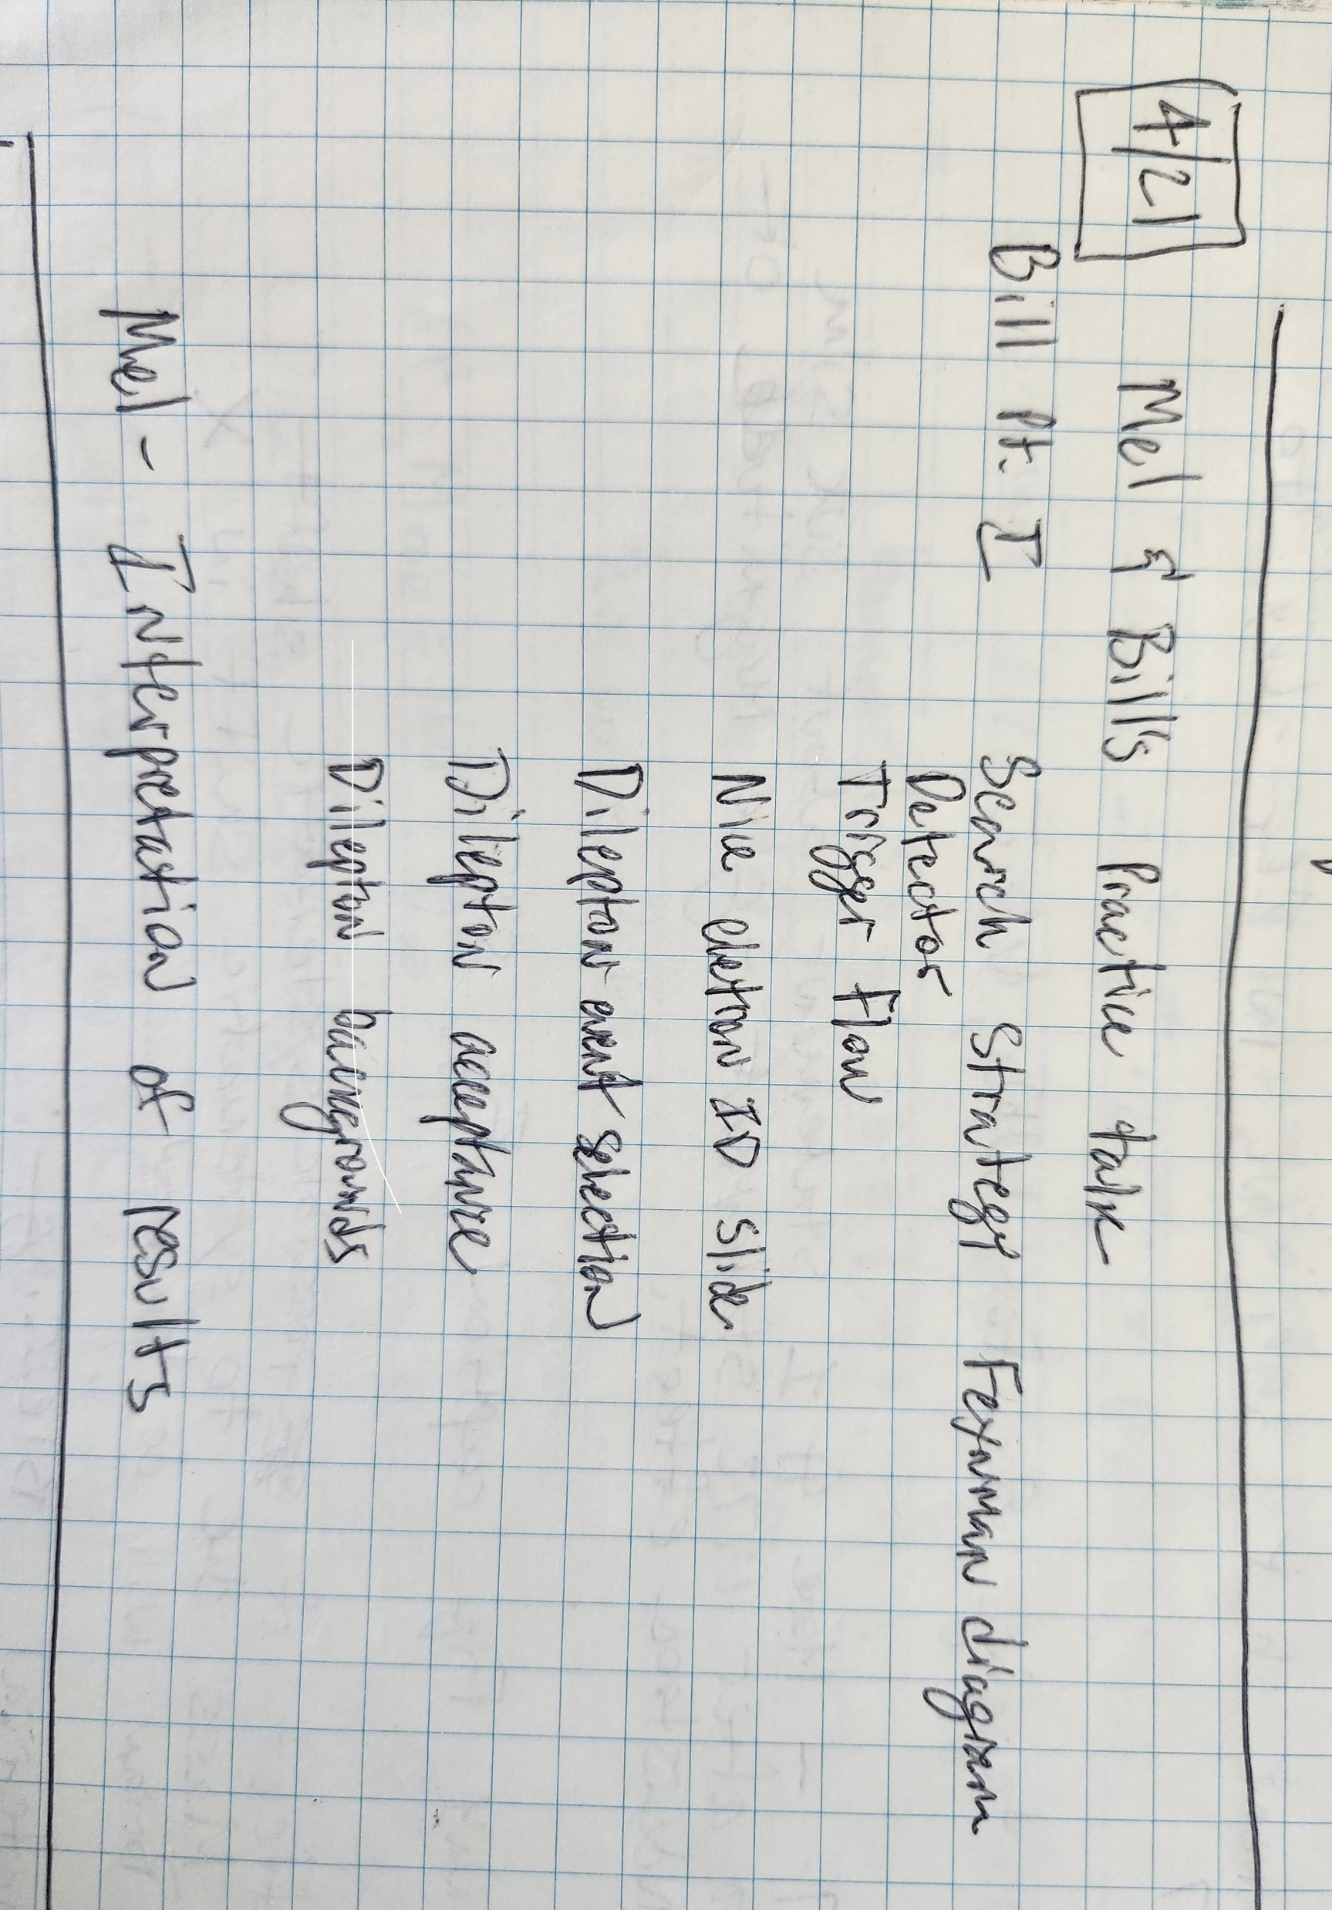 4/21
Mel & Bill's Practice talk
Bill Pt. I Search Strategy Feynman diagram
Detector
Trigger Flow
Nice electron ID slide
Dilepton event selection
Dilepton acceptance
Dilepton backgrounds
Mel - Interpretation of results